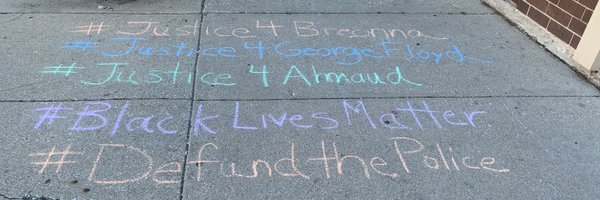 #Justice 4 Breonna
#Justice 4 GeorgeFloyd
#Justice 4 Ahmaud
#Black LivesMatter
#DefundthePolice